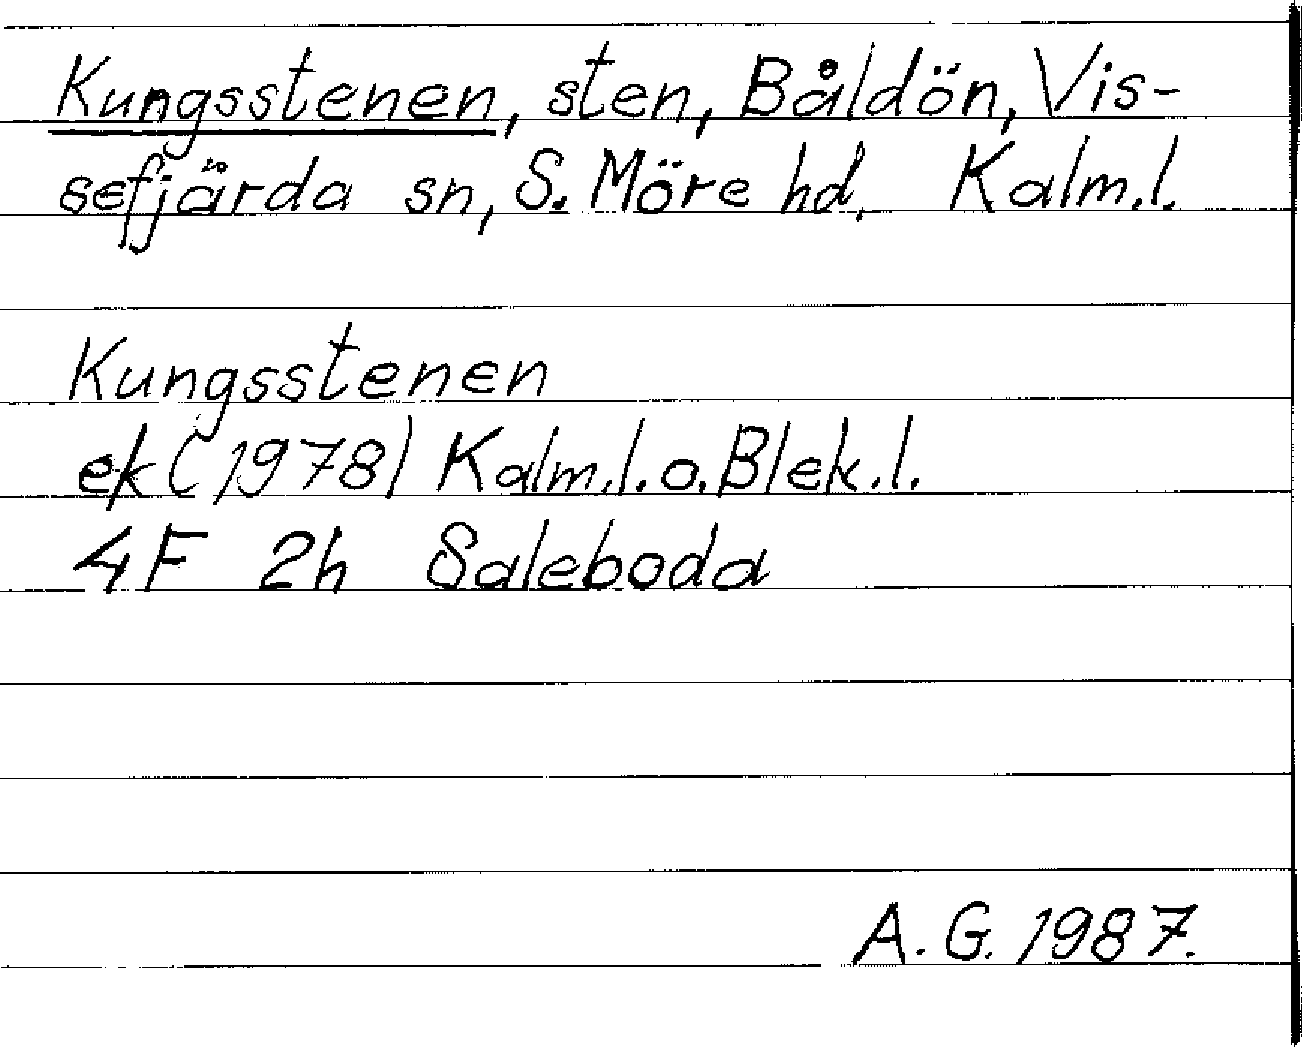 Kungsstenen, sten, Båldön, Vis-
sefjärda sn, S. Möre hd, Kalm.l.
Kungsstenen
ek (1978) Kalm.l.o.Blek.l.
4F 2h Saleboda
A.G. 1987.